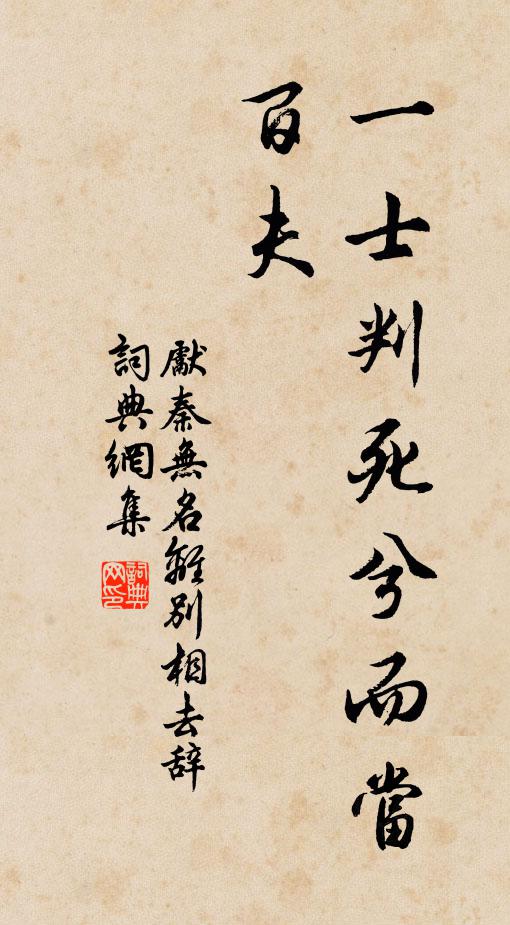 一士判死兮而當
百夫
獻秦無名離別相去辞
詞典網集
詞典
网印